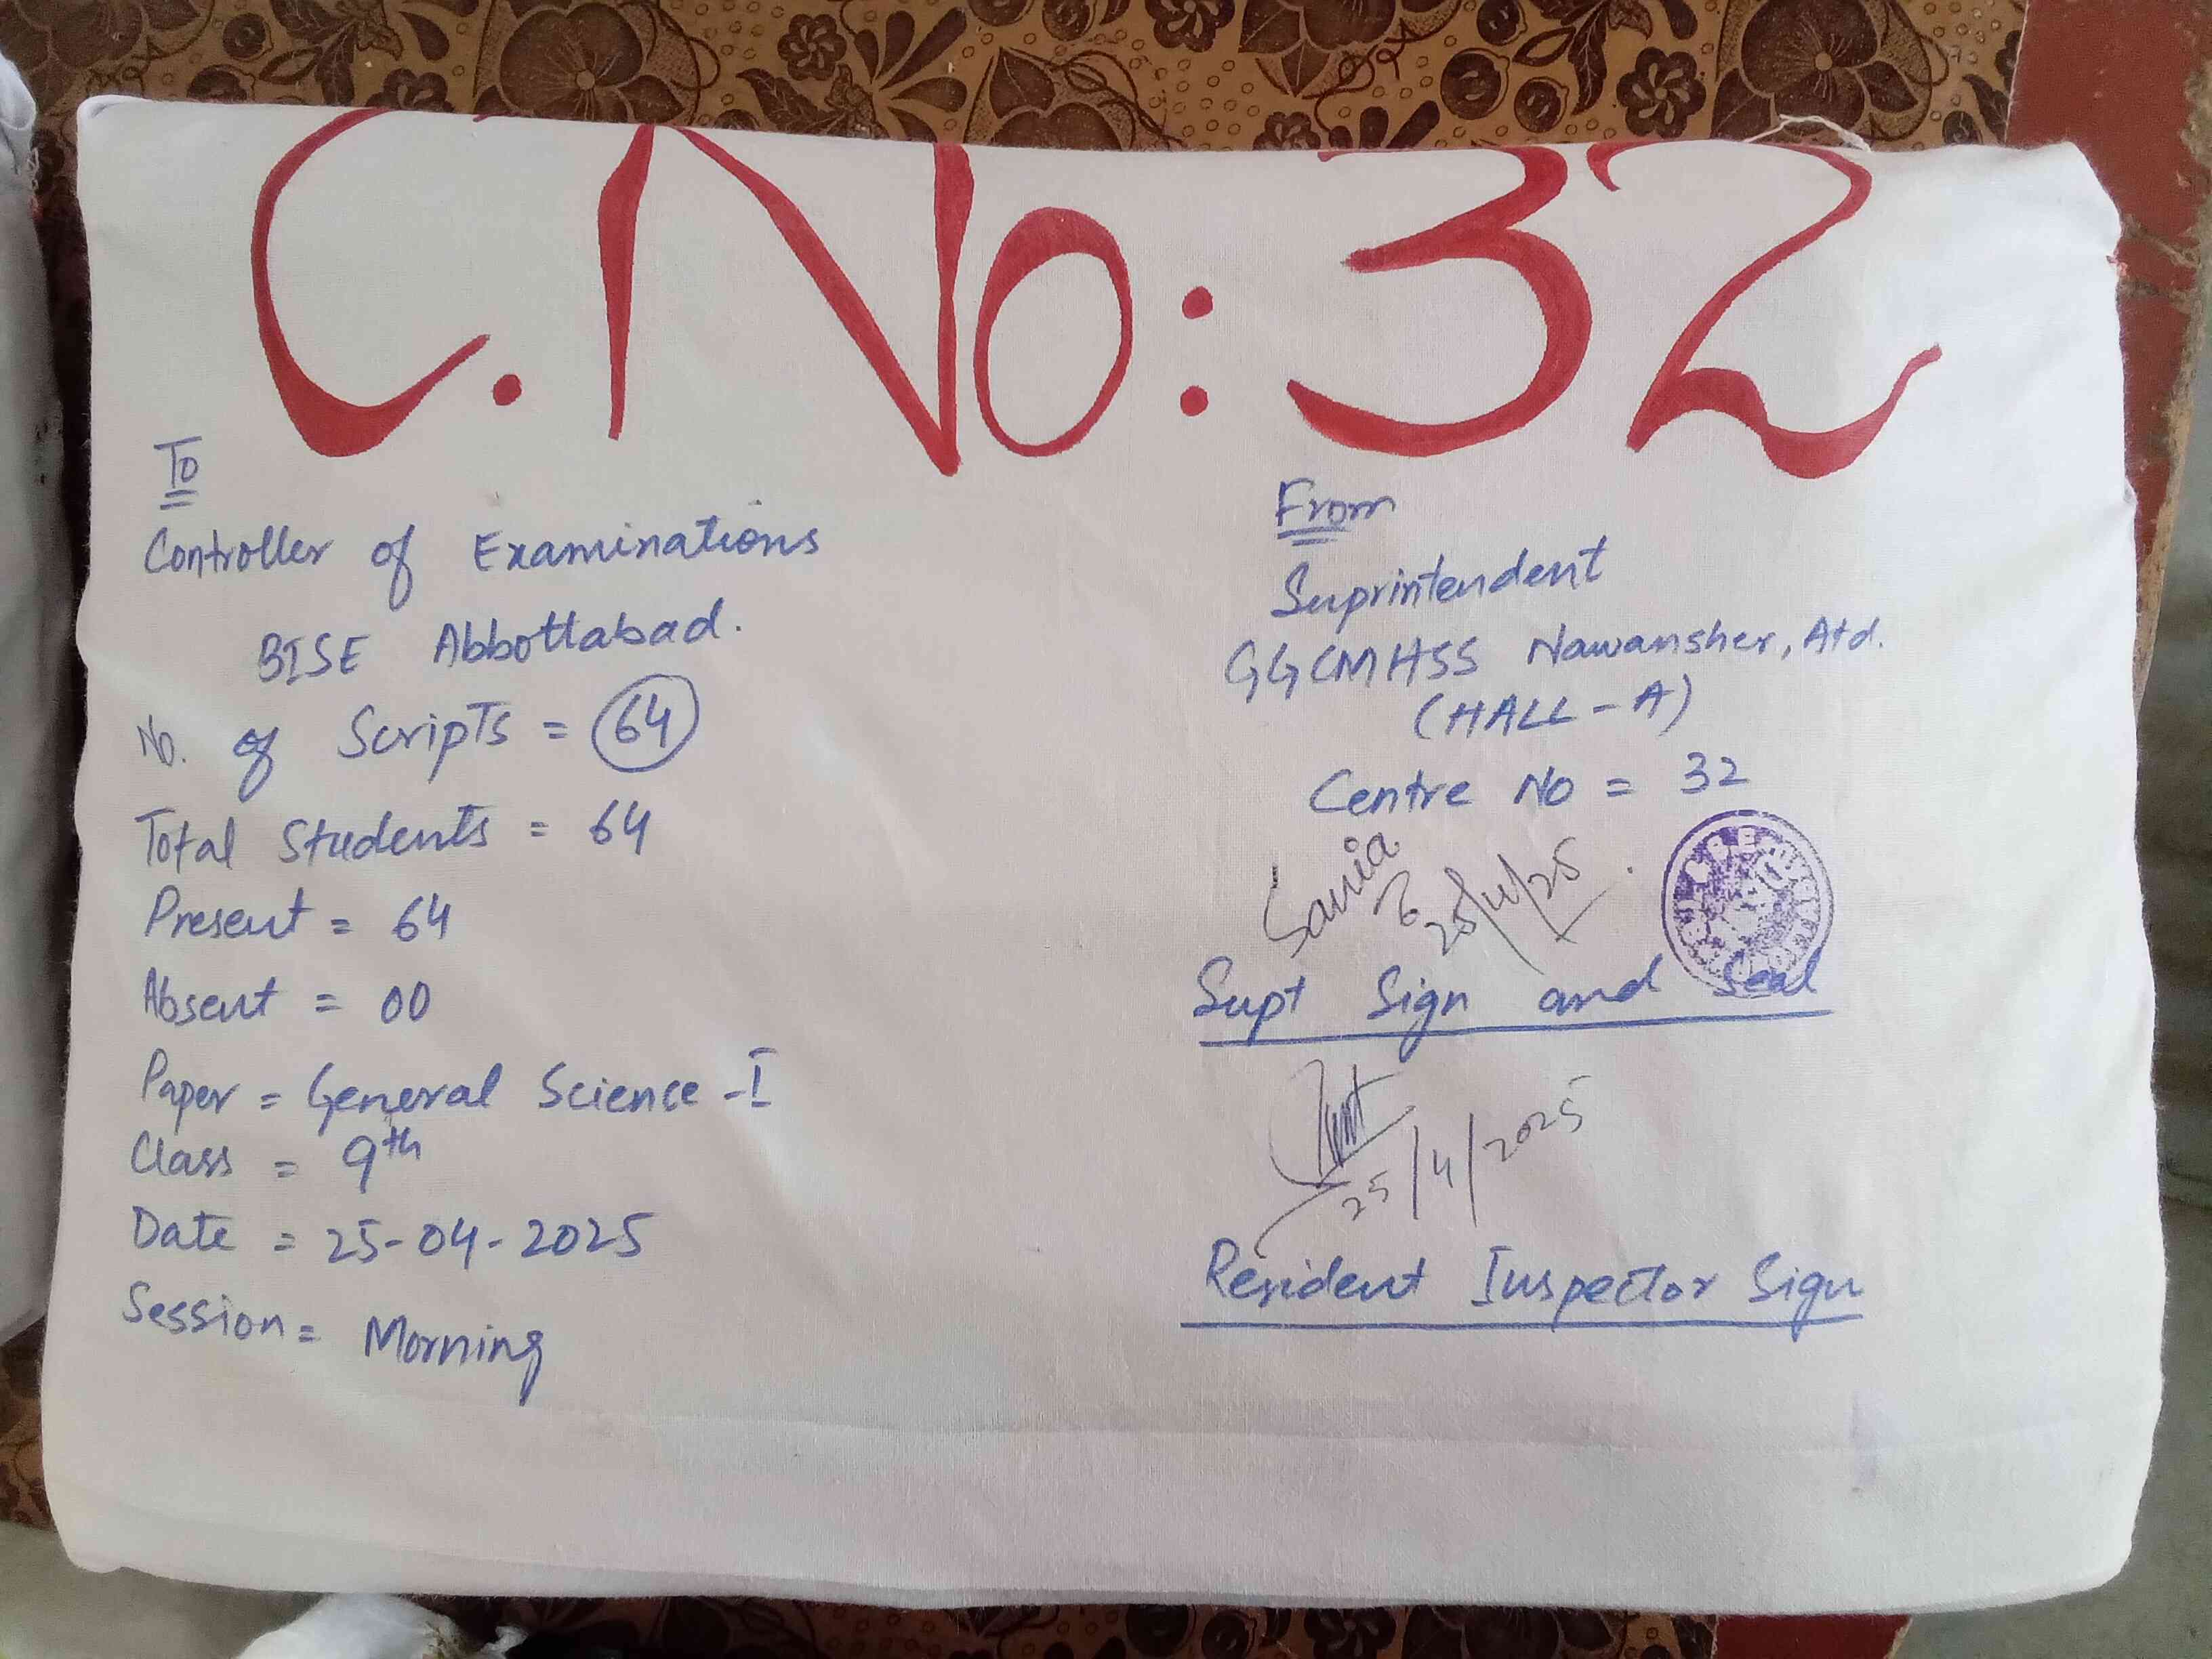 C.No: 32
To
Controller of Examinations
BISE Abbottabad.
No. of Scripts = 64
Total Students = 64
Present = 64
Absent = 00
Paper = General Science -I
Class = 9th
Date = 25-04-2025
Session = Morning
From
Suprintendent
GGCMHSS Nawansher, Atd.
(HALL-A)
Centre No = 32
25/4/25
Supt Sign and Seal
25/4/2025
Resident Inspector Sign